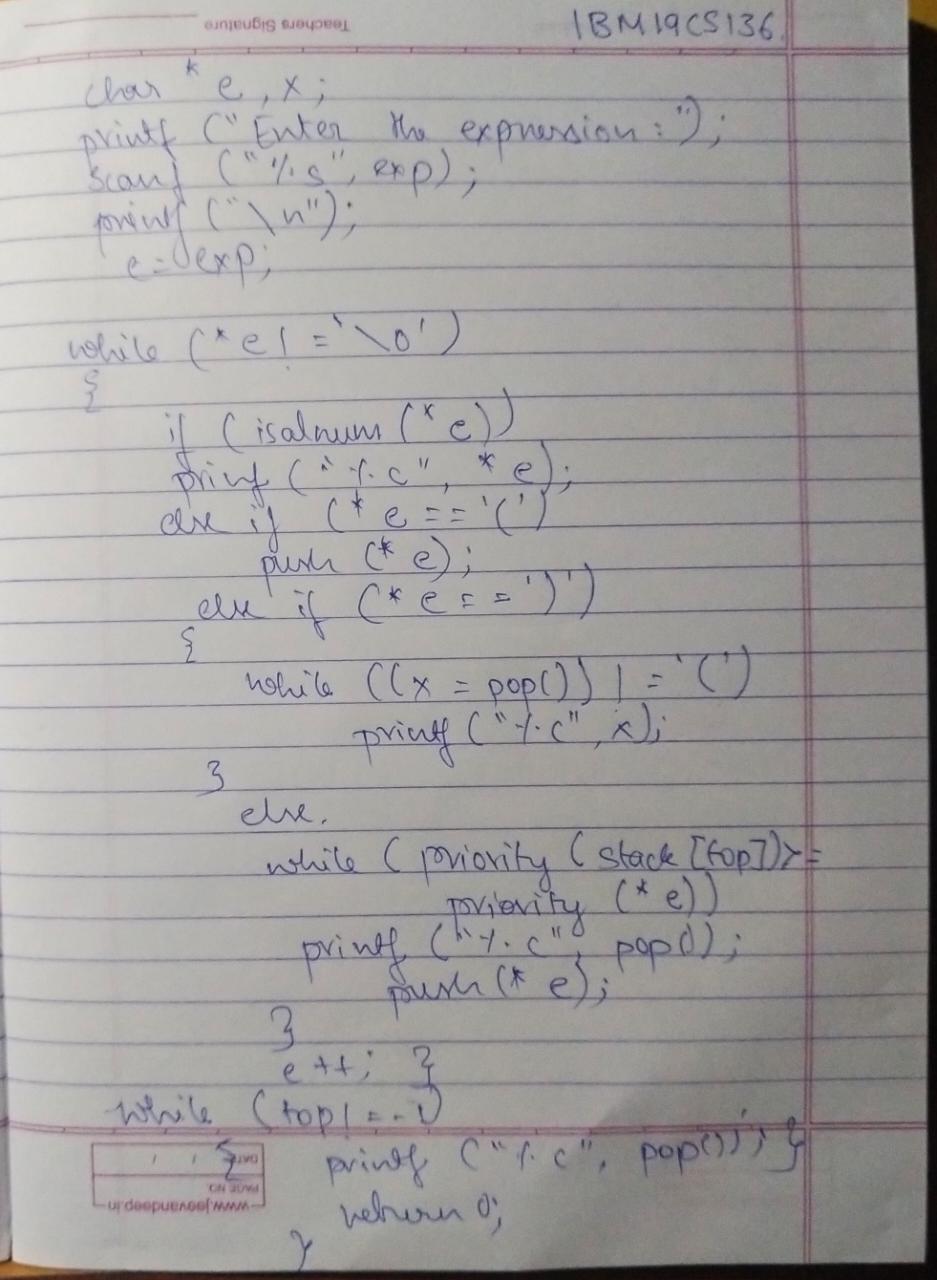 Teachers Signature
1BM19CS136
char * e, x;
printf ("Enter the expression:");
scanf ("%s", exp);
printf ("\n");
e = exp;
while (*e != '\0')
{
if (isalnum (*e))
prinf ("%c", *e);
else if (*e == '(')
push (*e);
else if (*e == ')')
{
while ((x = pop()) != '(')
printf ("%c", x);
}
else.
while (priority (stack [top]) >=
priority (*e))
printf ("%c", pop());
push (*e);
}
e++; }
while (top != -1)
{ printf ("%c", pop()); }
return 0;
}
DATE
PAGE NO
www.jeevandeep.in